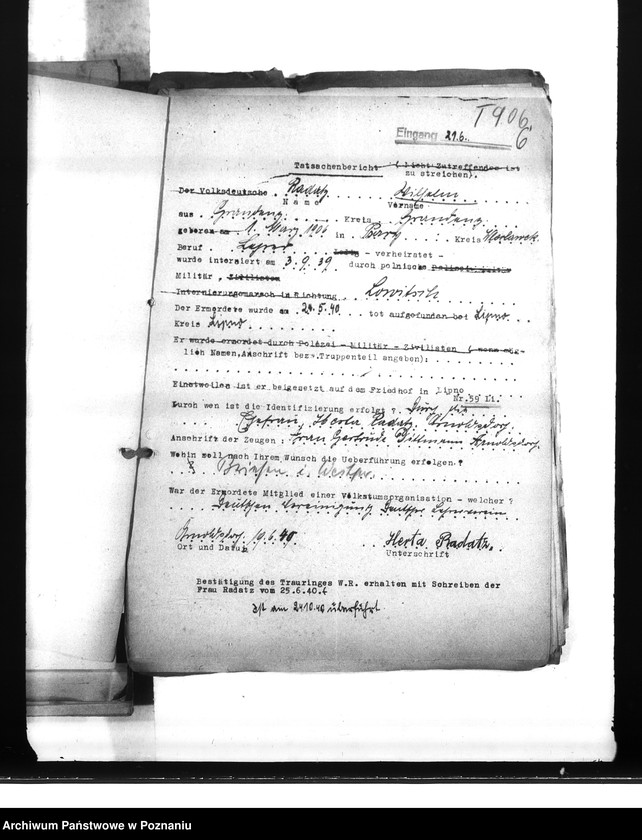 T 906
6
Eingang 21.6.
Tatsachenbericht ( nicht Zutreffendes ist
zu streichen).
Der Volksdeutsche . Radatz . . . . . Wilhelm . . . .
Name Vorname
aus . Graudenz . . . . . . Kreis . Graudenz . . .
geboren am 1. März 1906 in . . . Kreis
Beruf . Lehrer . . . . ledig - verheiratet -
wurde interniert am 3.9.39. durch polnische Polizei
Militär, Zivilisten
Internierungsmarsch in Richtung . Lowitsch . . .
Der Ermordete wurde am 24.5.40 . . tot aufgefunden bei Lipno . .
Kreis Lipno . . . . . . . .
Er wurde ermordet durch Polizei - Militär - Zivilisten ( wenn mög-
lich Namen, Anschrift bezw. Truppenteil angeben): . . . . . .
Einstweilen ist er beigesetzt auf dem Friedhof in Lipno
Nr. 59 Li.
Durch wen ist die Identifizierung erfolgt ? Durch die
Ehefrau, Herta Radatz, Arnoldsdorf.
Anschrift der Zeugen : Frau Gertrude Arnoldsdorf.
Wohin soll nach Ihrem Wunsch die Ueberführung erfolgen ?
. . Briesen i. Westpr. . . . . .
War der Ermordete Mitglied einer Volkstumsorganisation - welcher ?
. . . Deutschen Vereinigung Deutscher Lehrerverein . .
Arnoldsdorf, 19.6.40. . . . Herta Radatz. .
Ort und Datum Unterschrift
Bestätigung des Trauringes W.R. erhalten mit Schreiben der
Frau Radatz vom 25.6.40.
Ist am 24.10.40 überführt
Archiwum Państwowe w Poznaniu